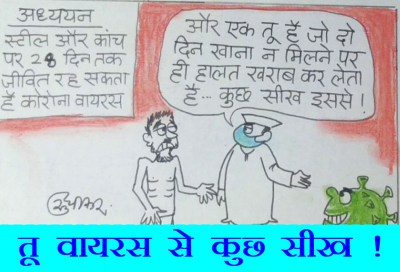 अध्ययन
स्टील और कांच
पर 28 दिन तक
जीवित रह सकता
है कोरोना वायरस
और एक तू है जो दो
दिन खाना न मिलने पर
ही हालत खराब कर लेता
है... कुछ सीख इससे !
सुधाकर
तू वायरस से कुछ सीख !